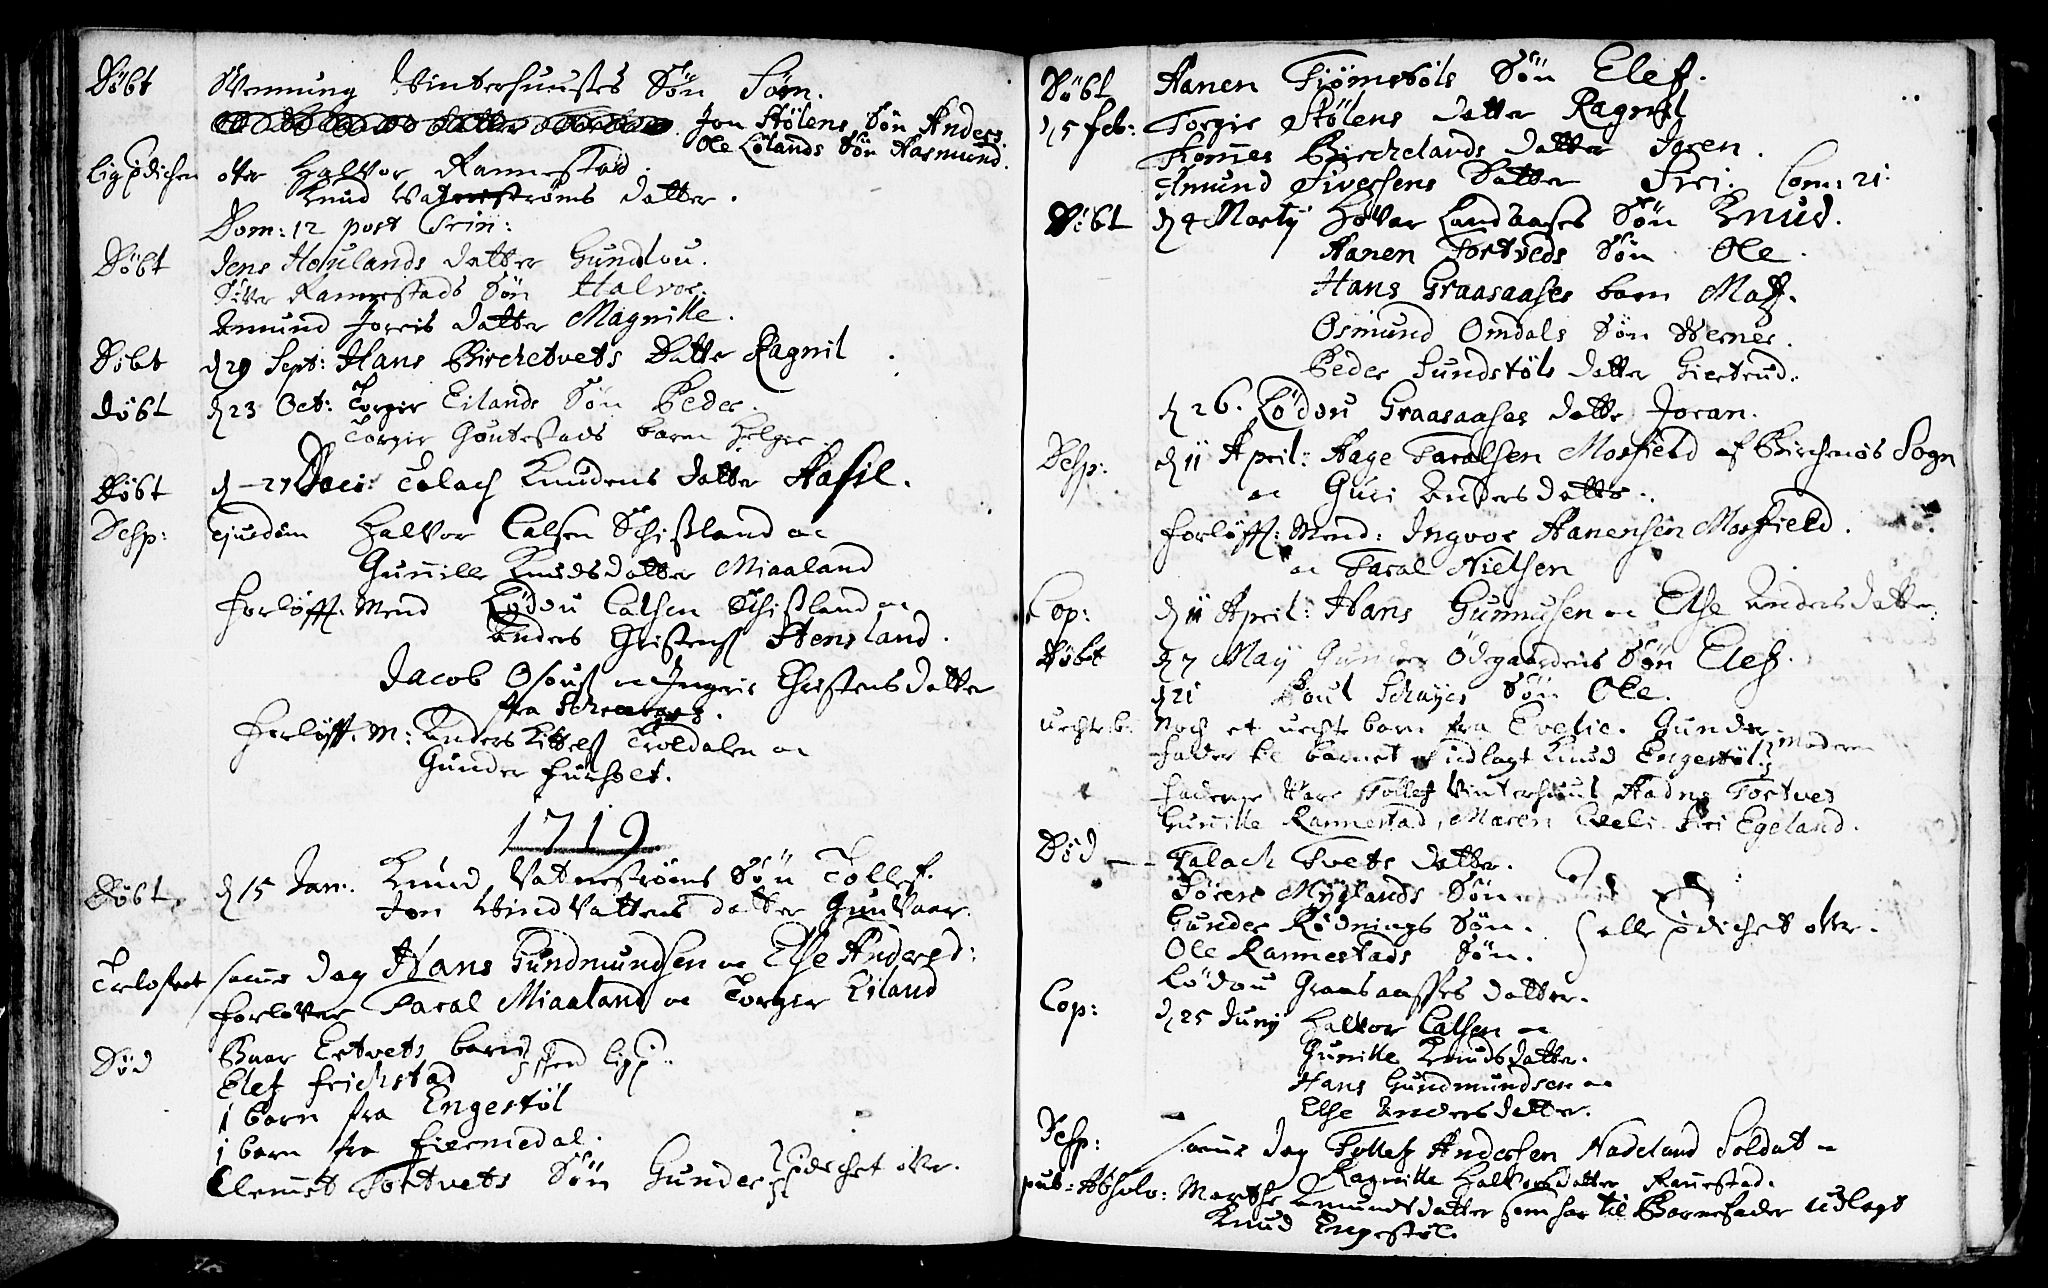 Døbt Wennung Winterhuuses Søn Sørn.
Jon Stølens Søn Anders.
Ole Lølands Søn Aasmund.
Ligpdichen over Halvor Rannestad.
Knud Vatnestrøms datter.
Dom: 12 post Trin:
Døbt Jens Høylands datter Gundlou.
Siver Rannestads Søn Halvor.
Amund Jorris datter Magnille.
Døbt d 29 Sept: Hans Birchetvets Datter Ragnil.
døbt d 23 Oct: Torgir Eilands Søn Peder.
Torgir Goutestads barn Helgie.
Døbt d -27 Dec: Tolach Knudens datter Aasil.
Desp: Ejusdem Halvor Calsen Schisland oc
Gunille Knudsdatter Miaaland
forløff. Mend Lødou Calsen Schisland oc
Anders Christens Stensland.
Jacob Osous oc Ingeir Christensdatter
fra
forløff. M: Anders Kittels Troldalen oc
Gunder furholt.
1719
Døbt, d 15 Jan: Knud Vatnestrøms Søn Tollef.
Jon Hindvattens datter Gunvaar.
Trolofvet samme dag Hans Gundmundsen oc Else Andersd:
forlover Taral Miaaland oc Torger Eiland
Død Baar Ertvets barn
Elef frichstad sten ligp.
1 barn fra Engestøl
1 barn fra fiermedal.
Clemet Tostvets Søn Gunder pdichet over.
Døbt Aanen Tiømstøls Søn Elef.
d 5 feb: Torgir Stølens datter Ragnil
Tommes Birchelands datter Joren.
Amund Siversens Datter Siri. Com: 21.
Døbt d 4 Marty Hovar Landaases Søn Knud.
Aanen Tostveds Søn Ole.
Hans Graasaases barn Mass.
Osmund Omdals Søn Wernes.
Peder Sundstøls datter Giertrud.
d 26. Lødou Graasaases datter Joran.
Desp: d 11 April: Aage Taralsen Mosfield af Birchenøs Sogn
oc Guri Andersdatter.
forløff: Mend: Ingvor Aanensen Mosfield.
oc Taral Nielsen
Cop: d 11 April: Hans Gunmusen oc Else Andersdatter.
Døbt d 7 May Gunder Ødegaardens Søn Elef.
d 21 Poul Schayes Søn Ole.
uechte b: Noch et uechte barn fra Evelie. Gunder.
fader til barnet udlagt Knud Engestøl. Moderen
fadderne Vare Tollef Vinterhuus Aadne Tostved
Gunille Rannestad, Maren Eveli. Siri Egeland.
Død Talach Tvets datter.
Søren Myglands Søn
Gunder Rødnings Søn. alle pdichet over.
Ole Rannestads Søn.
Lødou Graasaasses datter.
Cop: d 25 Juny Halvor Calsen oc
Gunille Knudsdatter.
Hans Gundmundsen oc
Else Andersdatter.
Desp: samme dag Tollef Andersen Nadeland Soldat oc
Ragnille Halvorsdatter Rannestad.
pub: Absolv: Marthe Amundsdatter som har til Barnefader udlagt
Knud Engestøl.